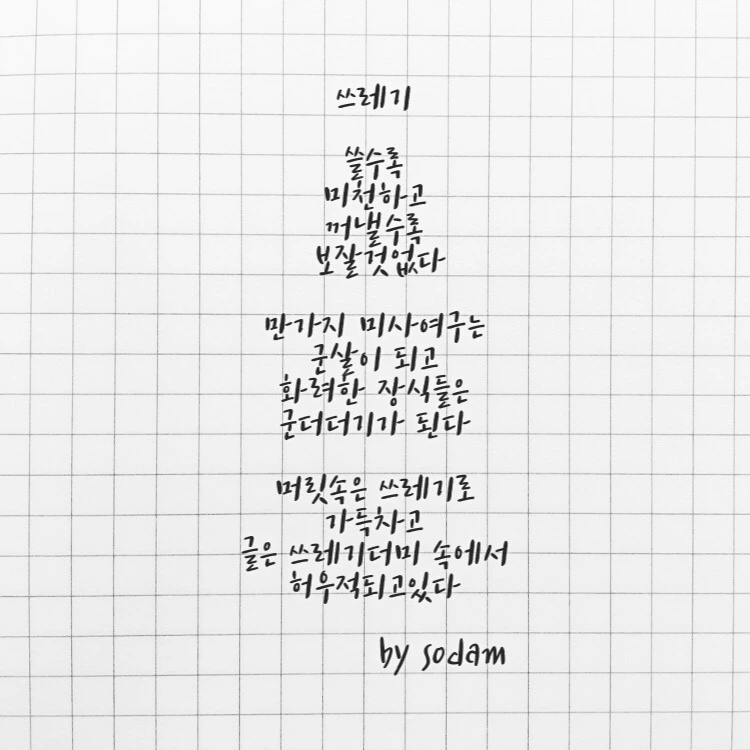 쓰레기
쓸수록
미천하고
꺼낼수록
보잘것없다
만가지 미사여구는
군살이 되고
화려한 장식들은
군더더기가 된다
머릿속은 쓰레기로
가득차고
글은 쓰레기더미 속에서
허우적되고있다
by sodam